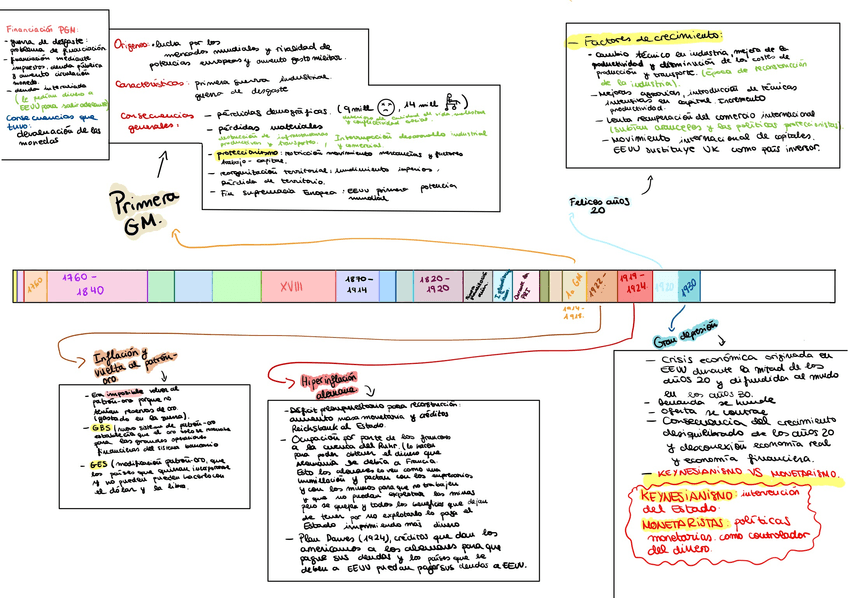 Financiación PGM:
- guerra de desgaste:
problema de financiación
- financiación mediante
impuestos, deuda pública
y aumento circulación
moneda.
- deuda interaliada
(le pedían dinero a
EEUU para salir adelante)
Consecuencias que
tuvo:
devaluación de las
monedas
Orígenes: · lucha por los
mercados mundiales y rivalidad de
potencias europeas y aumento gasto militar.
Características: primera guerra industrial.
guerra de desgaste
Consecuencias
generales:
- pérdidas demográficas. (9 mill , 14 mill )
- pérdidas materiales
Interrupción desarrollo industrial
y comercial.
- proteccionismo: restricción movimiento mercancías y factores
trabajo - capital.
- reorganización territorial: hundimiento imperios,
pérdida de territorio.
- Fin supremacía Europea: EEUU primera potencia
mundial
Primera
GM.
- Factores de crecimiento:
- cambio técnico en industria, mejora de la
productividad y disminución de los costes de
producción y transporte. (época de reconstrucción
de la industria).
- Mejoras agrarias, introducción de técnicas
intensivas en capital. Incremento
productividad.
- Lenta recuperación del comercio internacional
(subían aranceles y las políticas proteccionistas)
- Movimiento internacional de capitales.
EEUU sustituye UK como país inversor.
Felices años
20
1760
1760 -
1840
XVIII
1870 -
1914
1820 -
1920
1a GM
1922 -
1919 -
1924
1920
1930
1914 -
1918.
Inflación y
vuelta al patrón-
oro.
- Era imposible volver al
patrón-oro porque no
tenían reservas de oro.
(gastado en la guerra).
- GBS (nuevo sistema de patrón-oro
establecía que el oro solo se usaría
para las grandes operaciones
financieras del sistema bancario
- GES (modificación patrón-oro, que
los países que quieran incorporarse
y no puedan puedan hacerlo con
el dólar y la libra.
Hiperinflación
alemana
- Déficit presupuestario para reconstrucción:
aumento masa monetaria y créditos
Reichsbank al Estado.
- Ocupación por parte de los franceses
a la cuenca del Ruhr (lo hacen
para poder obtener el dinero que
Alemania se debía a Francia.
Esto los alemanes lo ven como una
humillación y pactan con los empresarios
y con los mineros para que no trabajen
y que no puedan explotar las minas
pero se queja y todos los beneficios que dejan
de tener por no explotarlo lo paga el
Estado imprimiendo más dinero
- Plan Dawes (1924), créditos que dan los
americanos a los alemanes para que
pague sus deudas y los países que se
deben a EEUU puedan pagar sus deudas a EEUU.
Gran depresión
- Crisis económica originada en
EEUU durante la mitad de los
años 20 y difundida al mundo
en los años 30.
- Demanda se hunde
- Oferta se contrae
- Consecuencia del crecimiento
desequilibrado de los años 20
y desconexión economía real
y economía financiera.
- KEYNESIANISMO VS MONETARISMO.
KEYNESIANISMO: intervención
del Estado.
MONETARISTAS: políticas
monetarias. como controlador
del dinero.